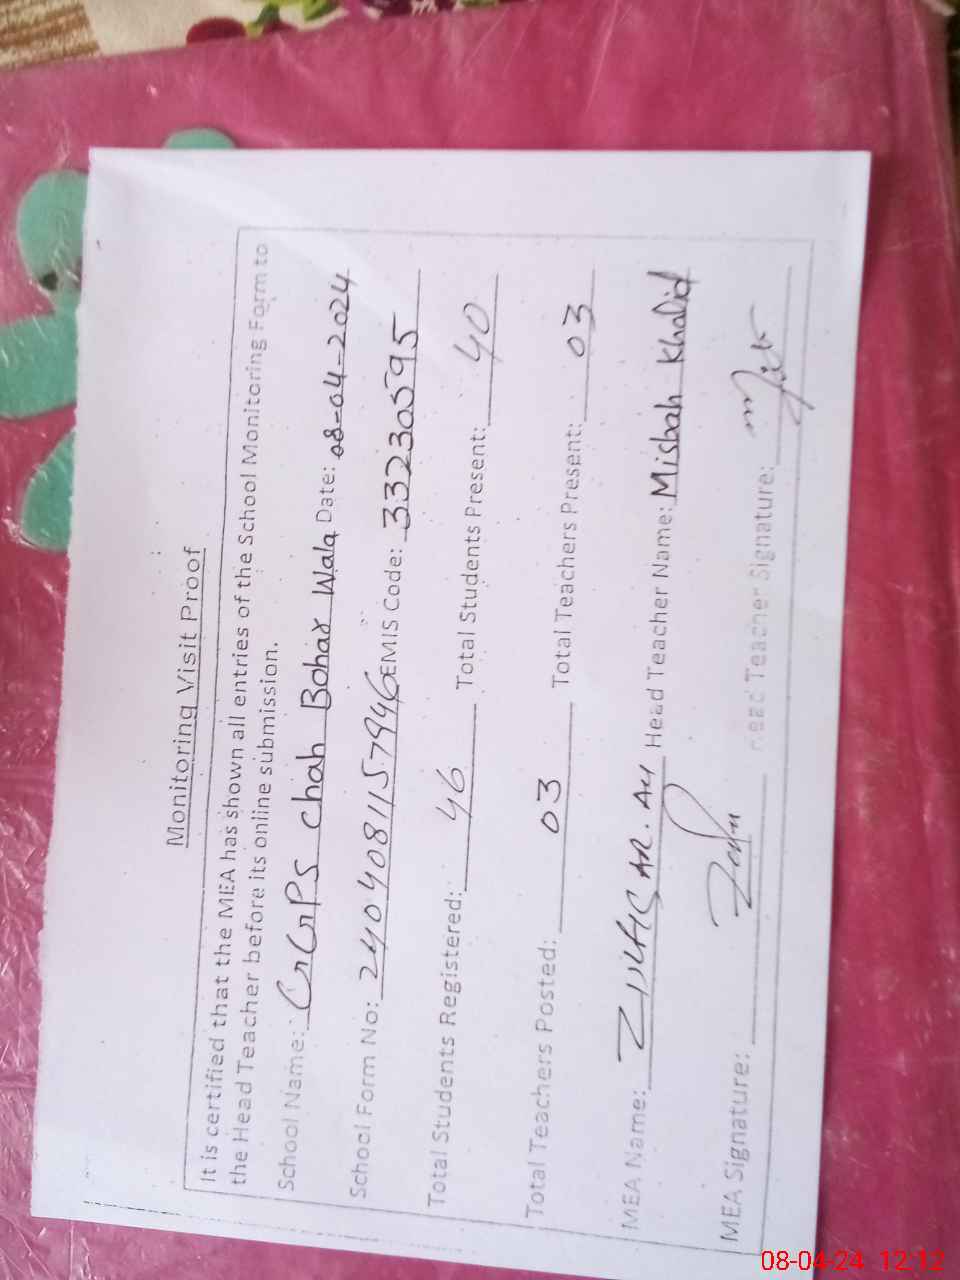 Monitoring Visit Proof
It is certified that the MEA has shown all entries of the School Monitoring Form to
the Head Teacher before its online submission.
School Name: GGPS chah Bohar Wala Date: 08-04-2024
School Form No: 2404081157946 EMIS Code: 33230595
Total Students Registered: 46 Total Students Present: 40
Total Teachers Posted: 03 Total Teachers Present: 03
MEA Name: Head Teacher Name: Misbah Khalid
MEA Signature: Head Teacher Signature:
08-04-24 12:12